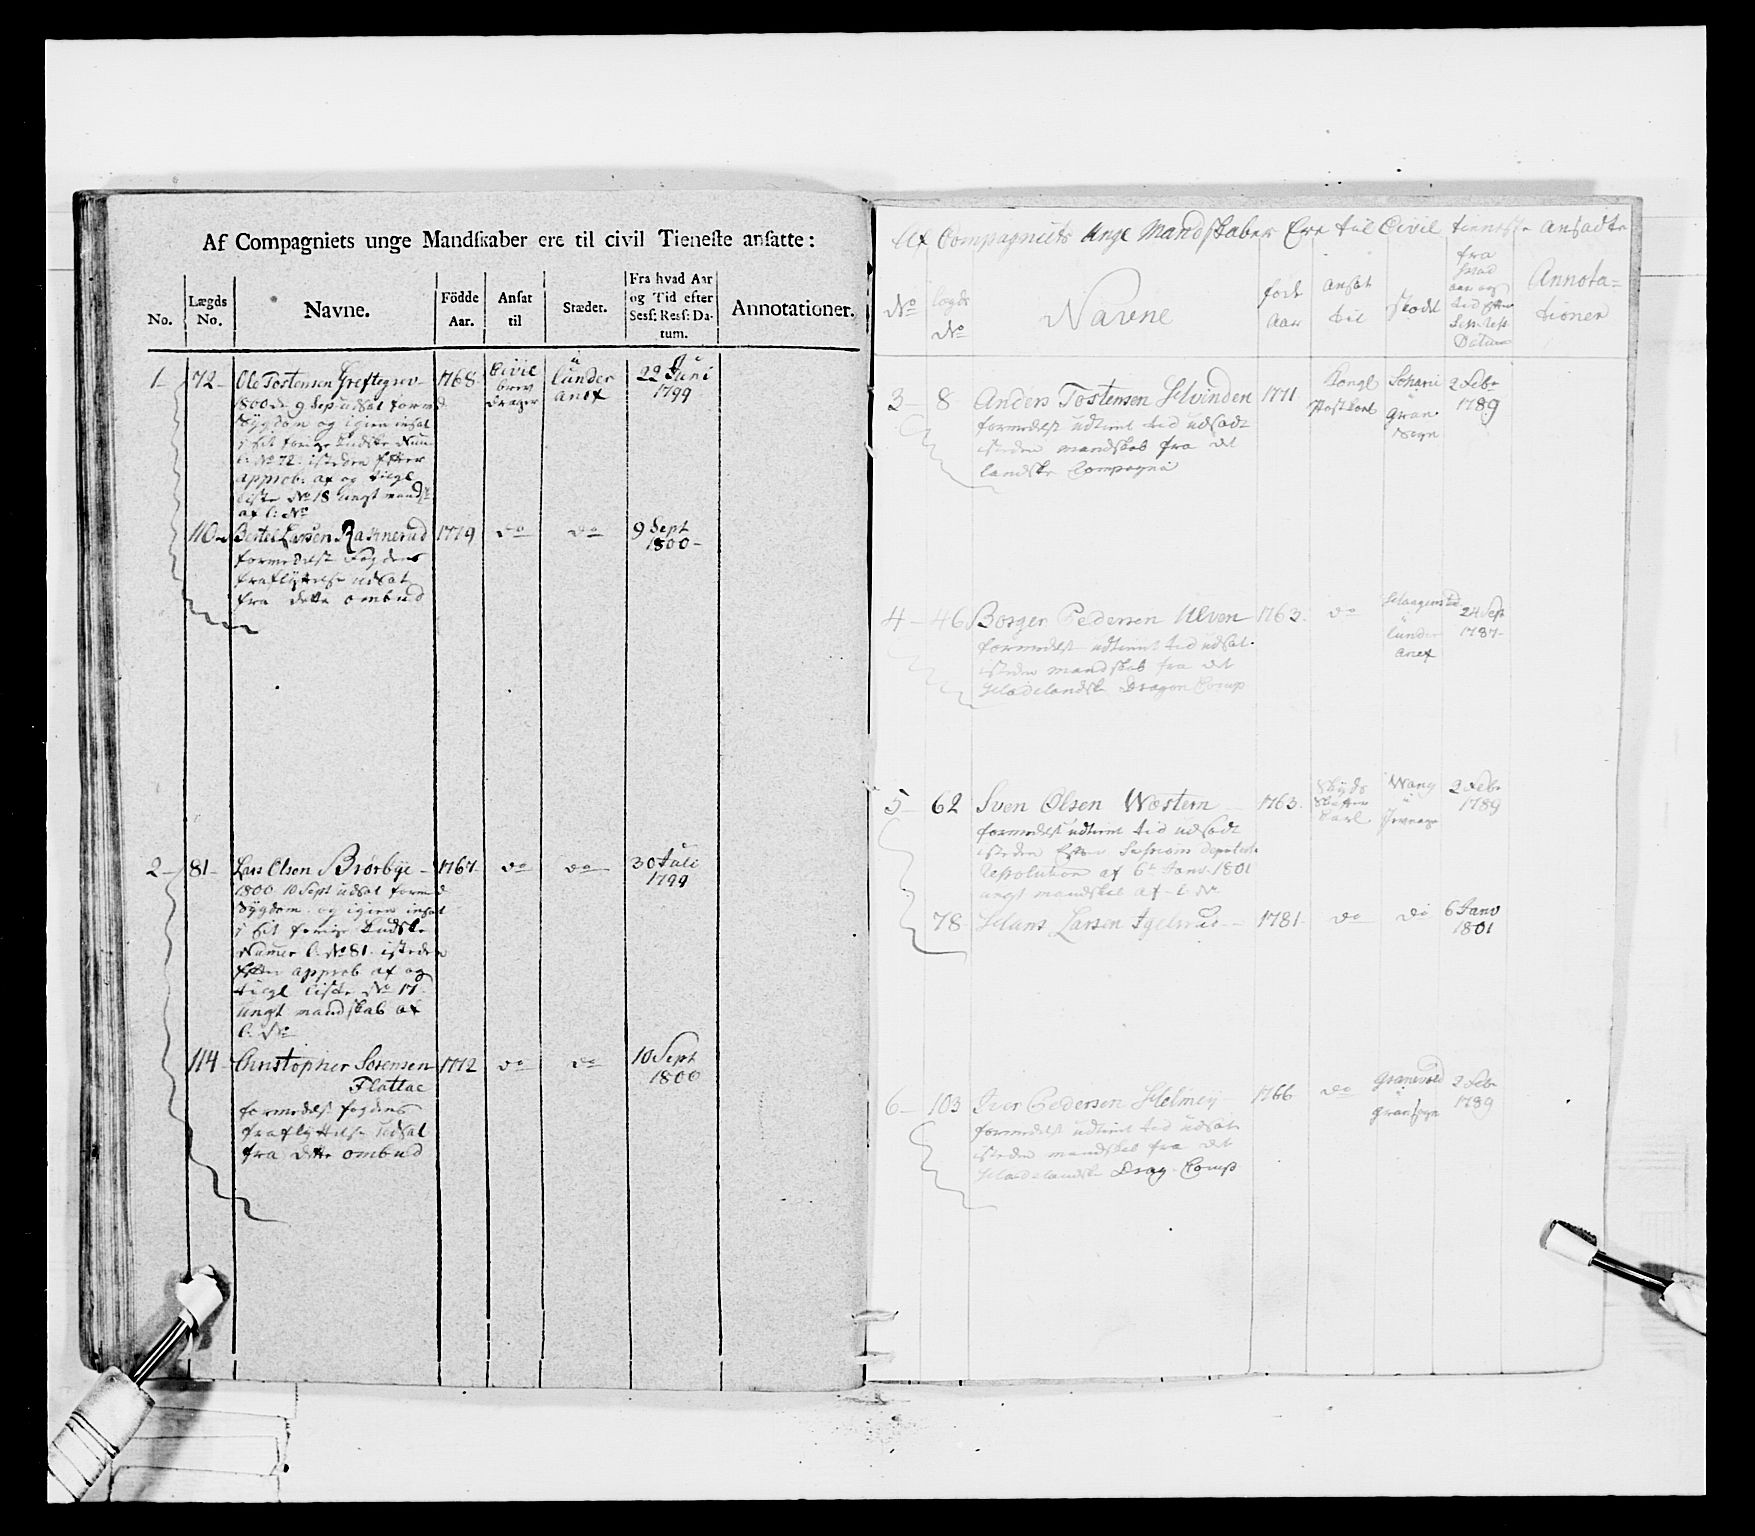 Af Compagniets unge Mandskaber ere til civil Tieneste ansatte:
No.
Lægds No.
Navne.
Födde Aar.
Ansat til
Stæder.
Fra hvad Aar og Tid efter Sess: Ress: Datum.
Annotationer.
1 72 Ole Tostensen Greftegrev 1768 Civil brev drager i Lunder Anex 22 Juni 1799
1800 d. 9 Sep udsat formed
Sygdom og igien insat
i sit forige Ludske Num
l: No 72. isteden efter
approb: af og tilgl
liste No 18 ungt mandsk
af l: No
110 Bertel Larsen Rasmerud 1779 do do 9 Sept 1800
formedelst Fogdens
fraflyttelse udsat
fra dette ombud
2 81 Lars Olsen Brörbye 1767 do do 30 Juli 1799
1800 10 Sept udsat formed
Sygdom og igien insat
i sit forige Ludske
Numer l: No 81 isteden
efter approb af og
tilgl liste No 17
ungt mandskab af
l: No
114 Christopher Sörensen 1772 do do 10 Sept 1800
Flattae
formedelst fogdens
fraflyttelse udsat
fra dette ombud
Af Compagniets Unge Mandskaber Ere til Civil tieneste ansadte
No
logds No
Navne
fodt Aar
ansat til
stædt
fra hvad aar og tid efter Sess: Ress: Datum
Annotationer
3 8 Anders Tostensen Hvinden 1771 Kongl Postkarl i Gran Sogn 2 Febr 1789
formedelst udtient tid udsadt
isteden mandskab fra det
landske Compagni
4 46 Borger Pedersen Ulven 1763 do i Lunder Anex 24 Sept 1787
formedelst udtient tid udsat
isteden mandskab fra det
Hadelandske Dragon Comp
5 62 Sven Olsen Western 1763 Skyds Skaffer Karl Wang i Jevnager 2 Febr 1789
formedelst udtient tid udsadt
isteden efter Sessions Deputerte
Resolution af 6te Janv. 1801
ungt mandskab af l: No
78 Hans Larsen 1781 do do 6 Janv 1801
6 103 Iver Pedersen Helmey 1766 do Granevold i Gransogn 2 Febr 1789
formedelst udtient tid udsat
isteden mandskab fra det
Hadelandske Drag Comp